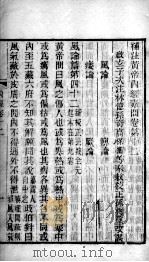 補註黃帝內經素問卷第十二
啟玄子次注林億孫奇高保衡等奉敕校正孫兆重改誤
風論 痺論
痿論 厥論
風論篇第四十二 新校正云按全元起本在第九卷
黃帝問曰風之傷人也或為寒熱或為熱中或為寒中
或為癘風或為偏枯或為風也其病各異其名不同或
內至五藏六府不知其解願聞其說 岐伯對曰
風氣藏於皮膚之間內不得通外不得泄